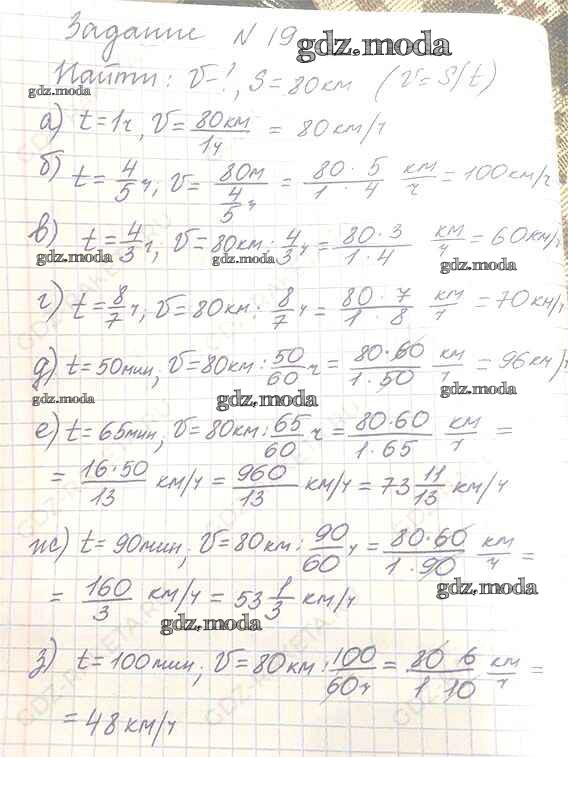 Задание N 19
gdz.moda
Найти: V-?, S=80км (V=S/t)
gdz.moda
а) t=1ч, V=80км/1ч = 80км/ч
б) t=4/5ч; V=80м/(4/5ч) = 80·5/1·4 км/ч = 100км/ч
в) t=4/3ч, V=80км:4/3ч = 80·3/1·4 км/ч = 60км/ч
gdz.moda gdz.moda gdz.moda
г) t=8/7ч, V=80км:8/7ч = 80·7/1·8 км/ч = 70км/ч
д) t=50мин, V=80км:50/60ч = 80·60/1·50 км/ч = 96км/ч
gdz.moda gdz.moda gdz.moda
е) t=65мин, V=80км:65/60ч = 80·60/1·65 км/ч =
= 16·50/13 км/ч = 960/13 км/ч = 73 11/13 км/ч
ж) t=90мин; V=80км:90/60ч = 80·60/1·90 км/ч =
gdz.moda
= 160/3 км/ч = 53 1/3 км/ч
gdz.moda
з) t=100мин; V=80км:100/60ч = 80 6/1 10 км/ч =
= 48км/ч